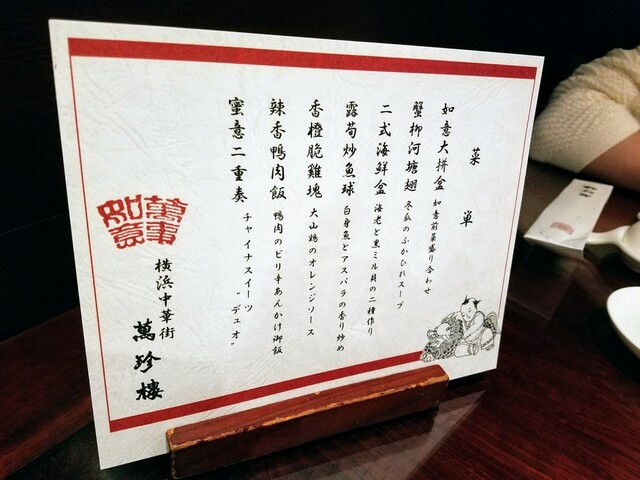 菜単
如意大拼盆 如意前菜盛り合わせ
蟹柳河塘翅 冬瓜のふかひれスープ
二式海鮮盒 海老と黒ミル貝の二種作り
露荀炒魚球 白身魚とアスパラの香り炒め
香橙脆雞塊 大山鶏のオレンジソース
辣香鴨肉飯 鴨肉のピリ辛あんかけ御飯
蜜意二重奏 チャイナスイーツ “デュオ”
萬事如意
横浜中華街
萬珍樓